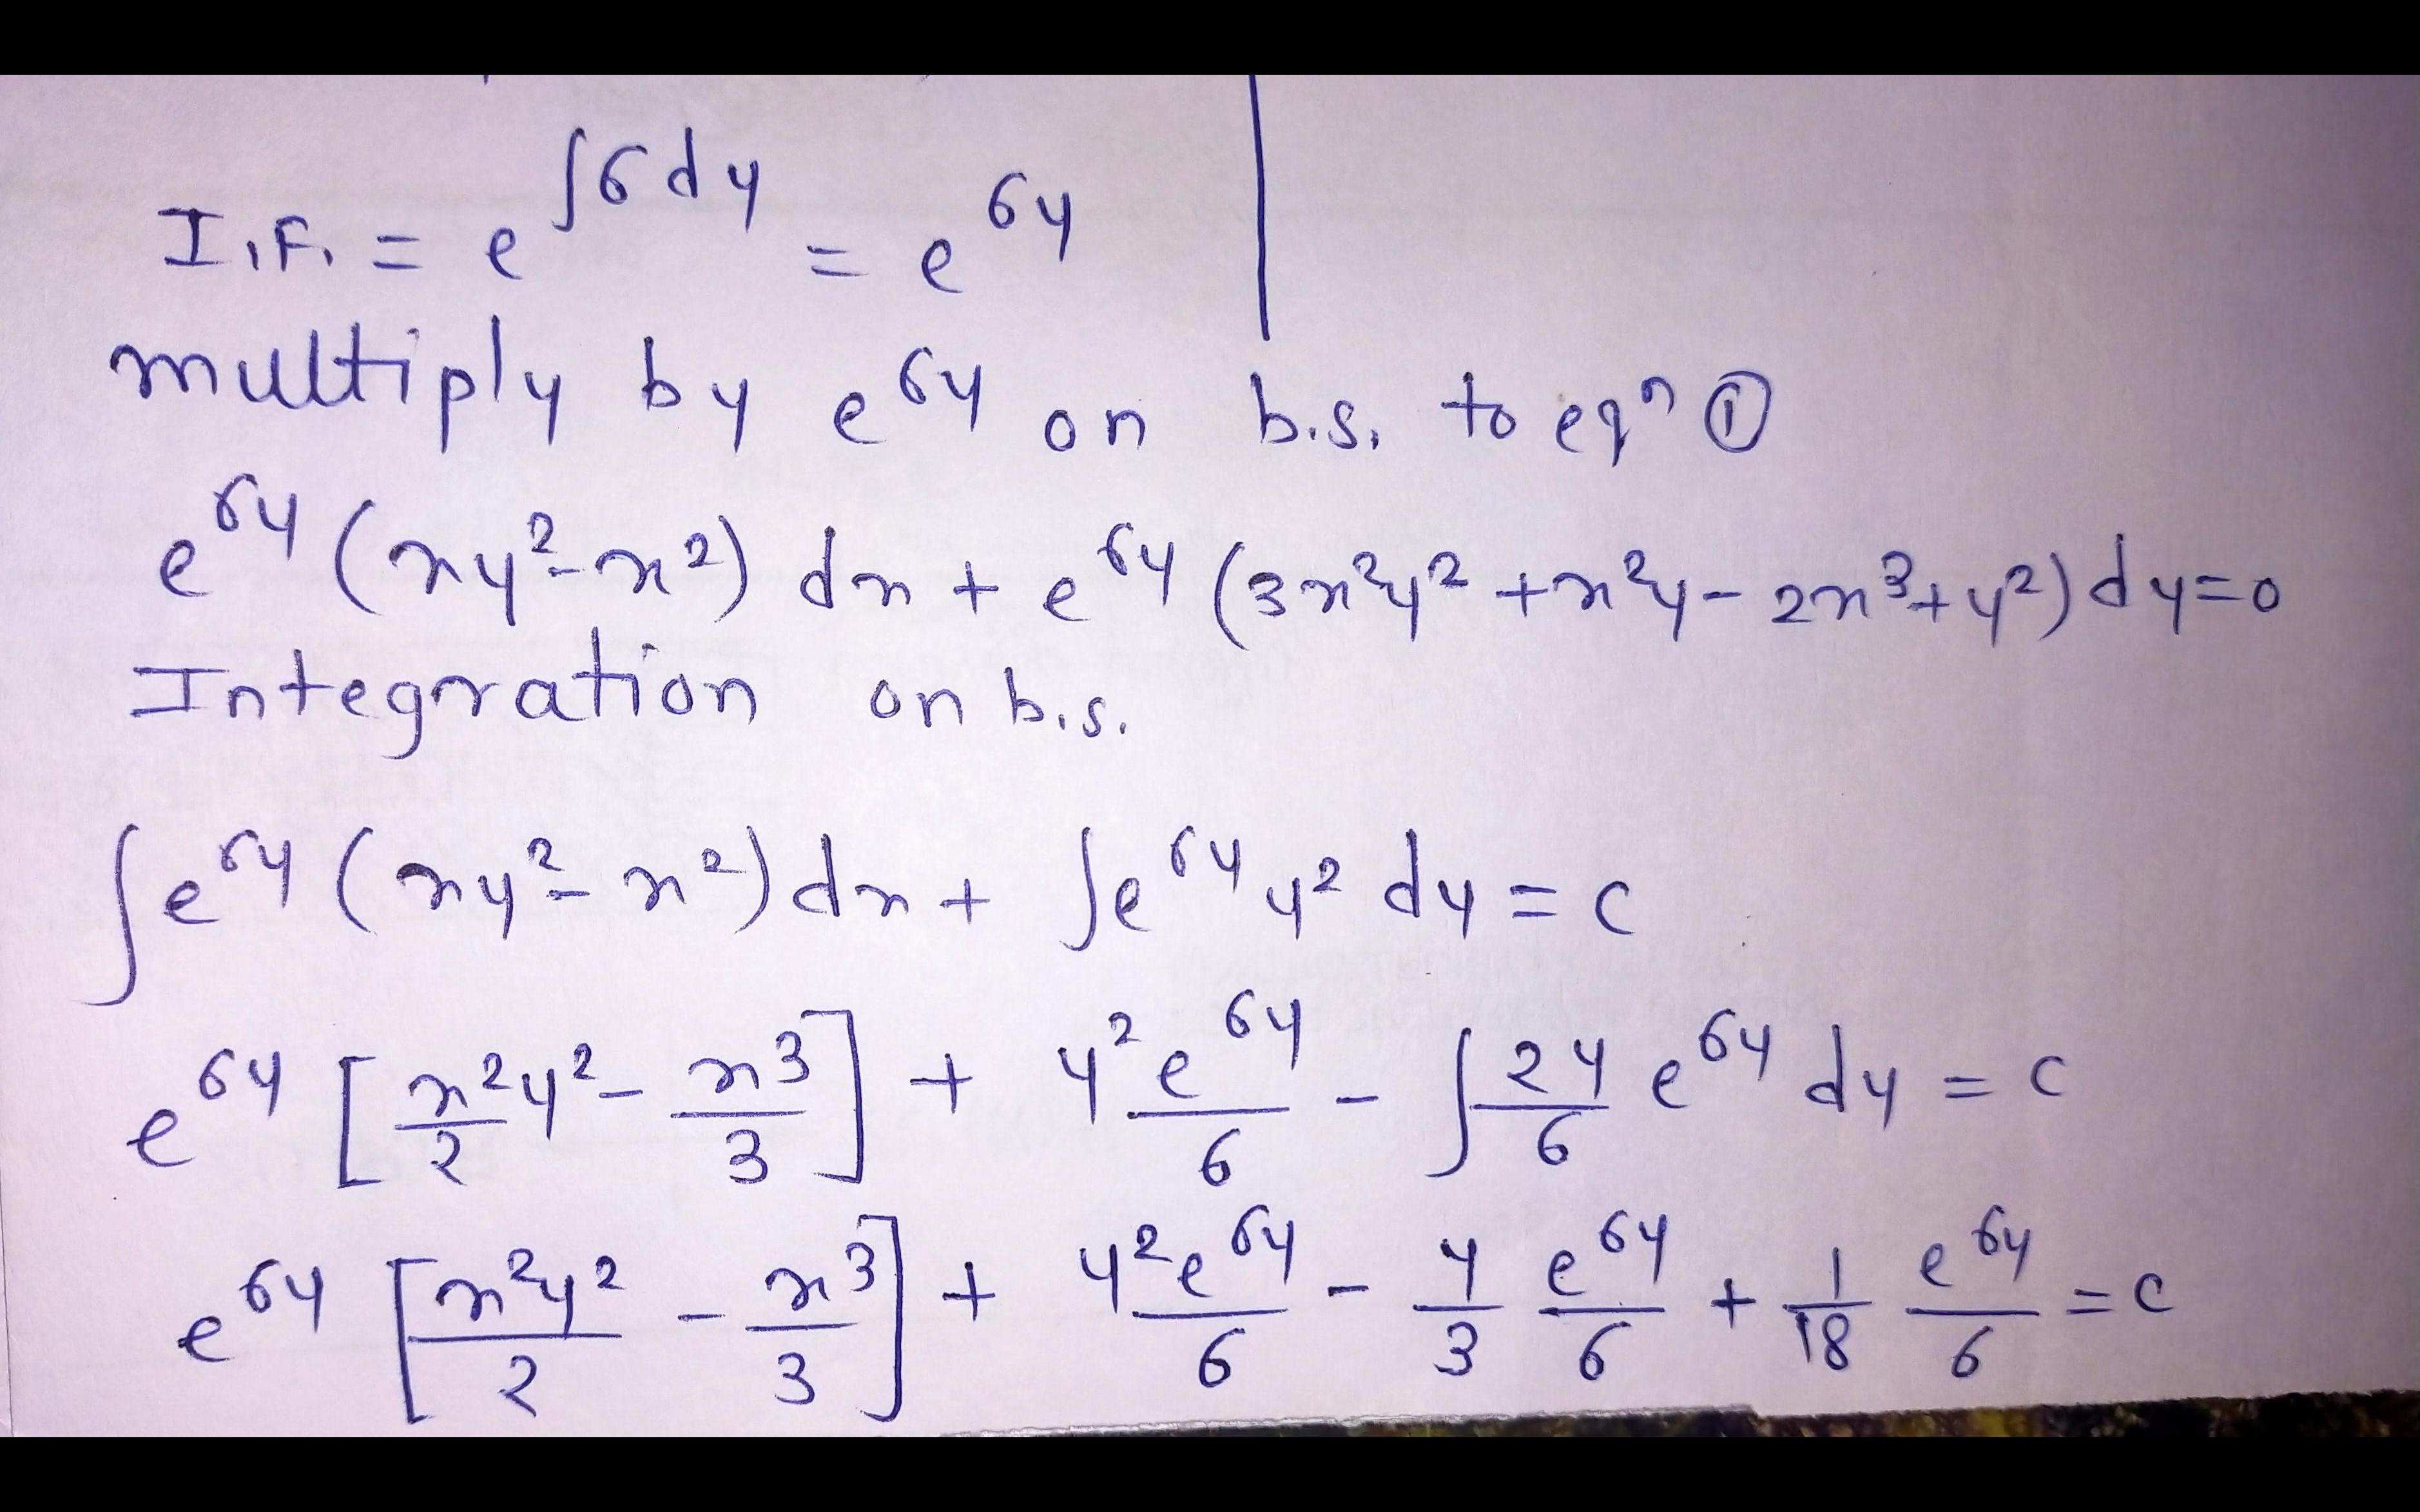 I.F. = e^{∫6dy} = e^{6y}
multiply by e^{6y} on b.s. to eqⁿ ①
e^{6y} (xy² - x²) dx + e^{6y} (3x²y² + x²y - 2x³ + y²) dy = 0
Integration on b.s.
∫e^{6y} (xy² - x²) dx + ∫e^{6y} y² dy = c
e^{6y} [x²/2 y² - x³/3] + y² e^{6y}/6 - ∫ 2y/6 e^{6y} dy = c
e^{6y} [x²y²/2 - x³/3] + y²e^{6y}/6 - y/3 e^{6y}/6 + 1/18 e^{6y}/6 = c